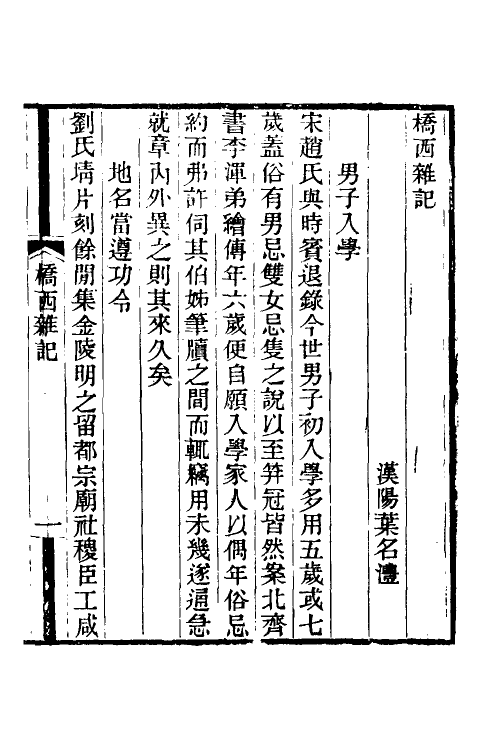 橋西雜記
漢陽葉名澧
男子入學
宋趙氏與時賓退錄今世男子初入學多用五歲或七
歲蓋俗有男忌雙女忌隻之說以至笄冠皆然案北齊
書李渾弟繪傳年六歲便自願入學家人以偶年俗忌
約而弗許伺其伯姊筆牘之間而輒竊用未幾遂通急
就章內外異之則其來久矣
地名當遵功令
劉氏埥片刻餘閒集金陵明之留都宗廟社稷臣工咸
橋西雜記
一